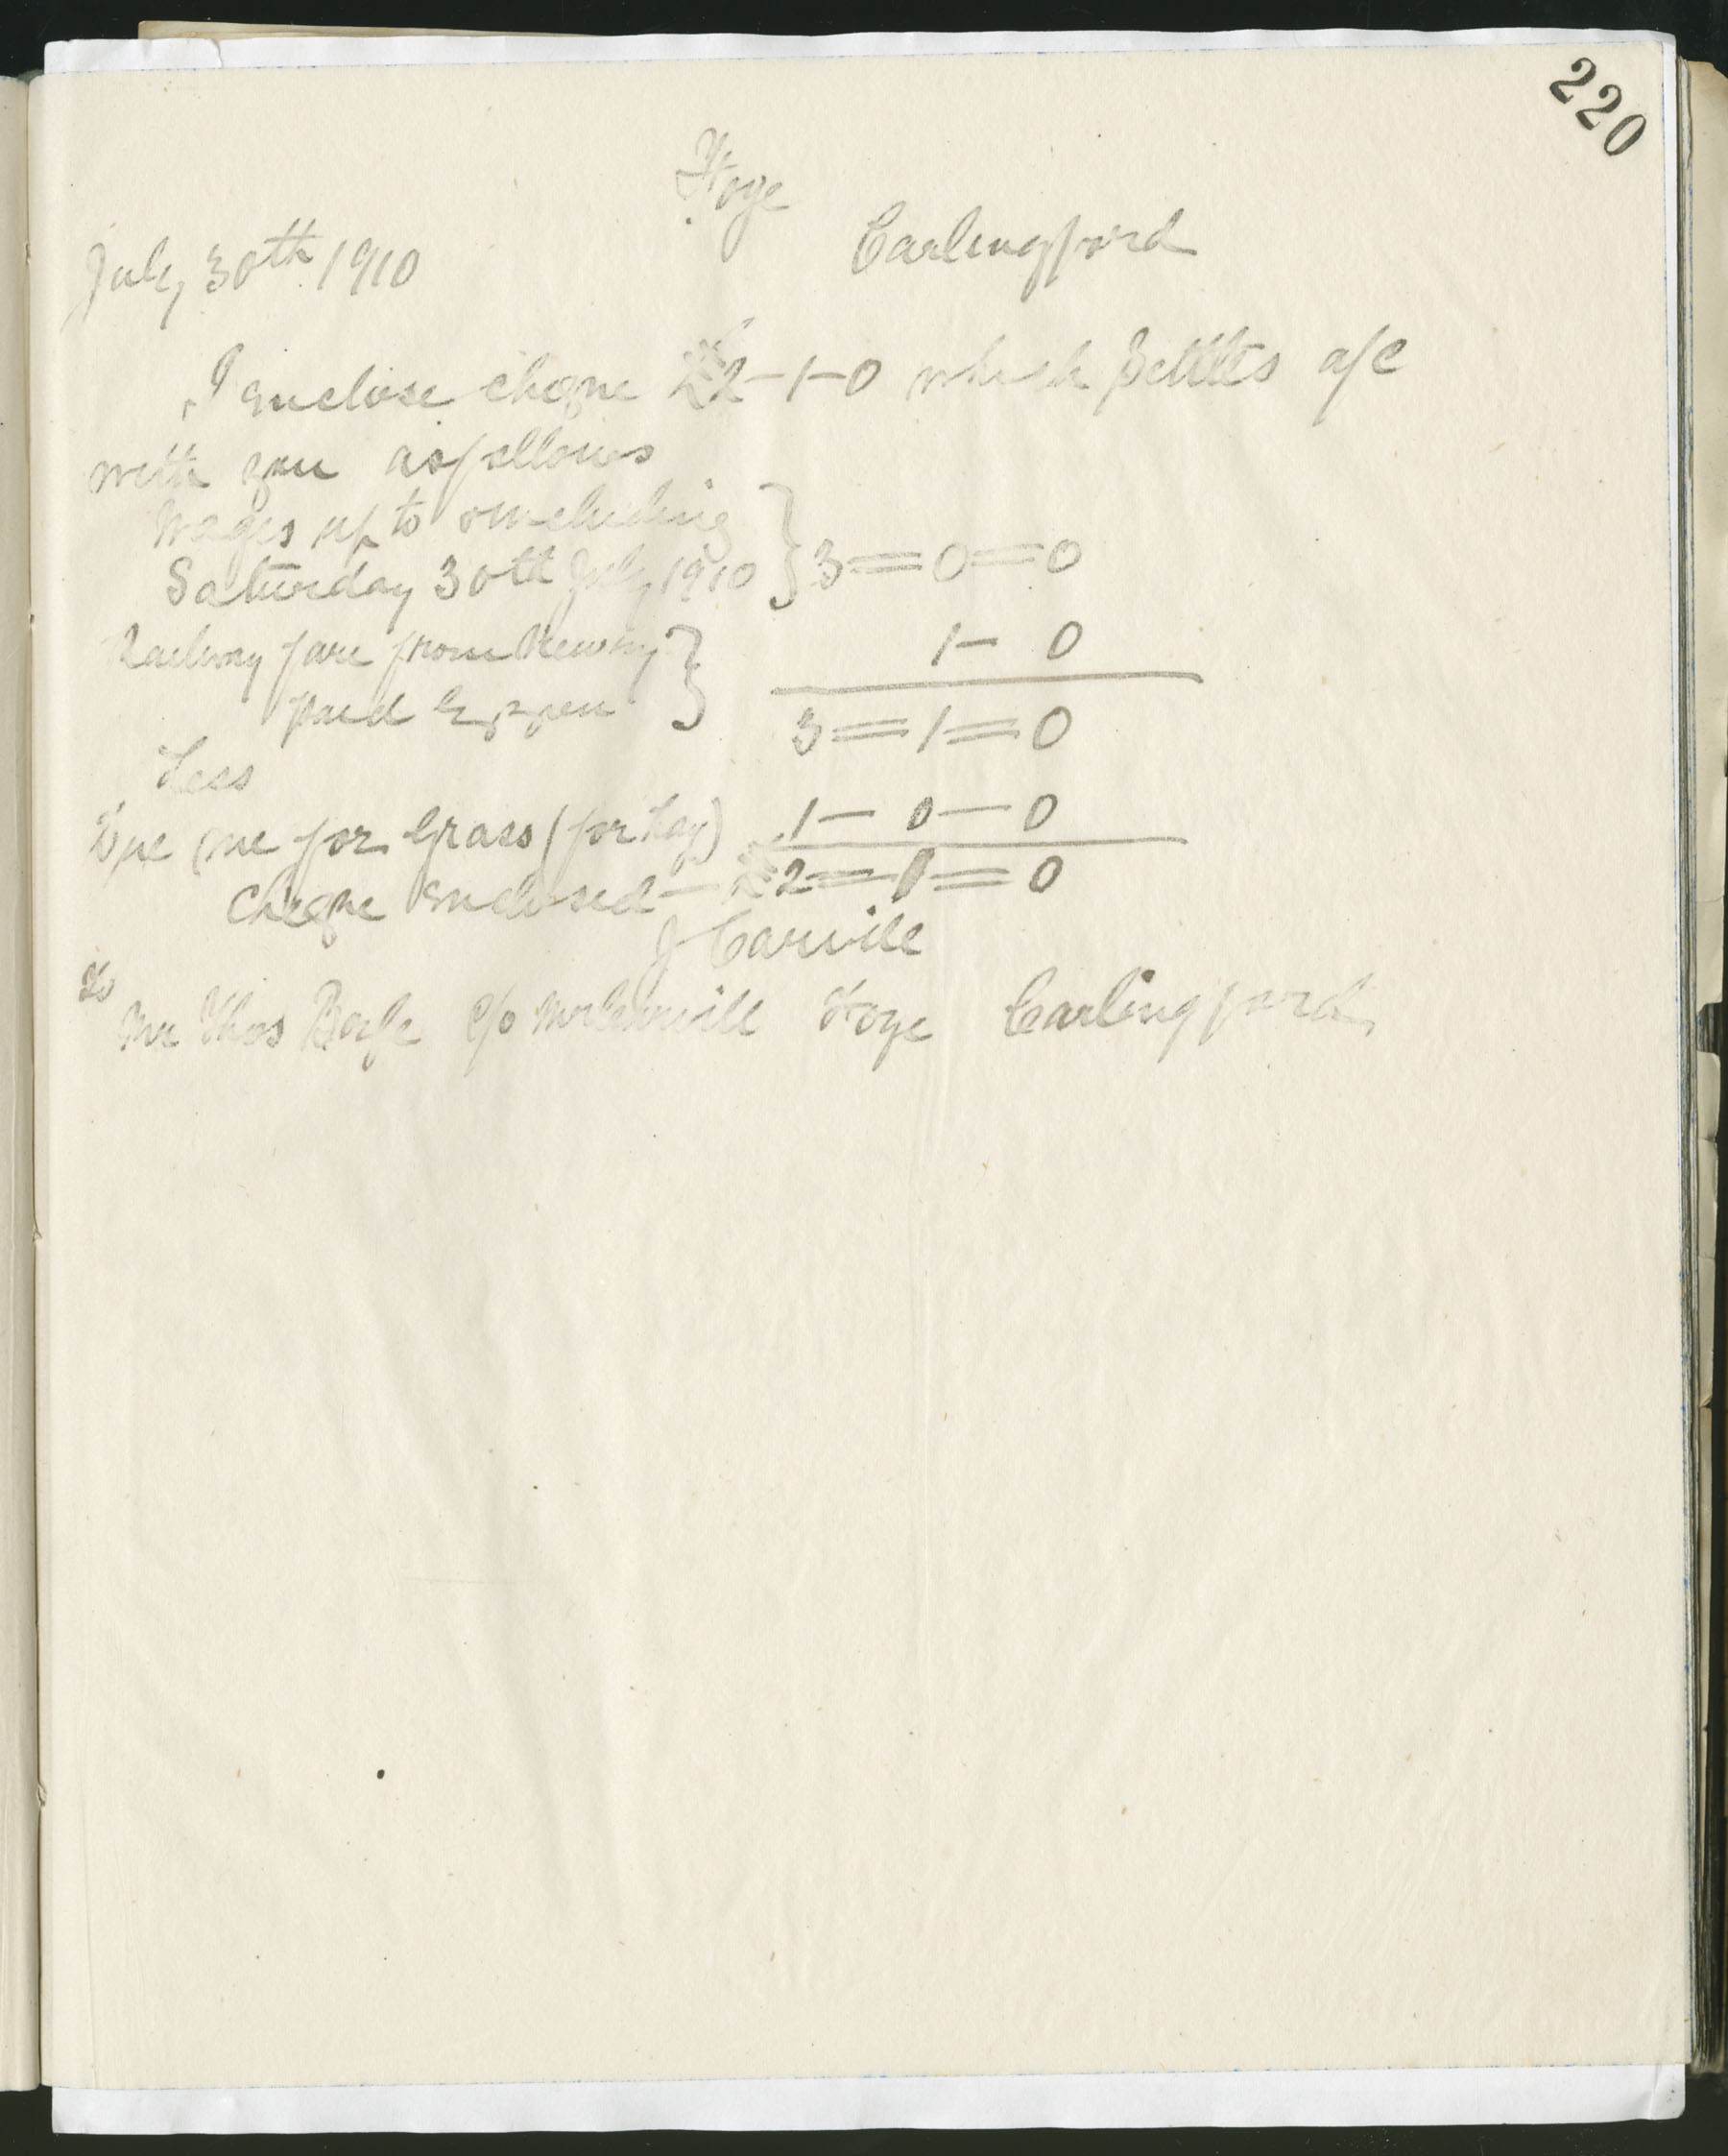 220
Carlingford
July 30th 1910
I enclose cheque £2-1-0 which settles a/c
with you as follows
Wages up to & including
Saturday 30th July 1910 } 3=0=0
Railway fare from Newry }
paid by you 1- 0
3=1=0
Less
Due me for Grass (for hay) 1-0-0
Cheque enclosed - £2=1=0
J Carvill
To
Mr Thos c/o Carlingford